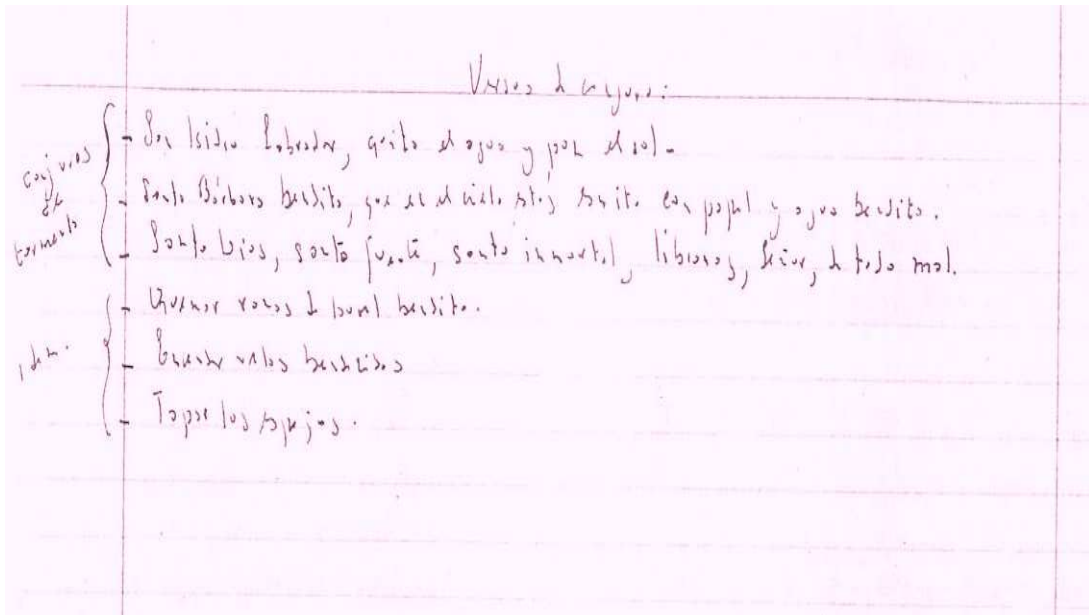 Versos de conjuro:
conjuros de tormenta
- San Isidro Labrador, quita el agua y pon el sol.
- Santa Bárbara bendita, que en el cielo estás escrita con papel y agua bendita.
- Santo Dios, santo fuerte, santo inmortal, libranos, Señor, de todo mal.
idem.
- Quemar ramas de laurel bendito.
- Encender velas bendecidas
- Tapar los espejos.